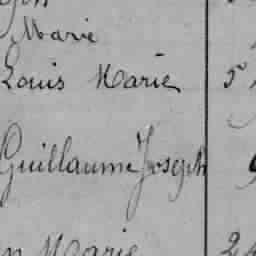 Marie
Louis Marie 5
Guillaume Joseph
Marie 2